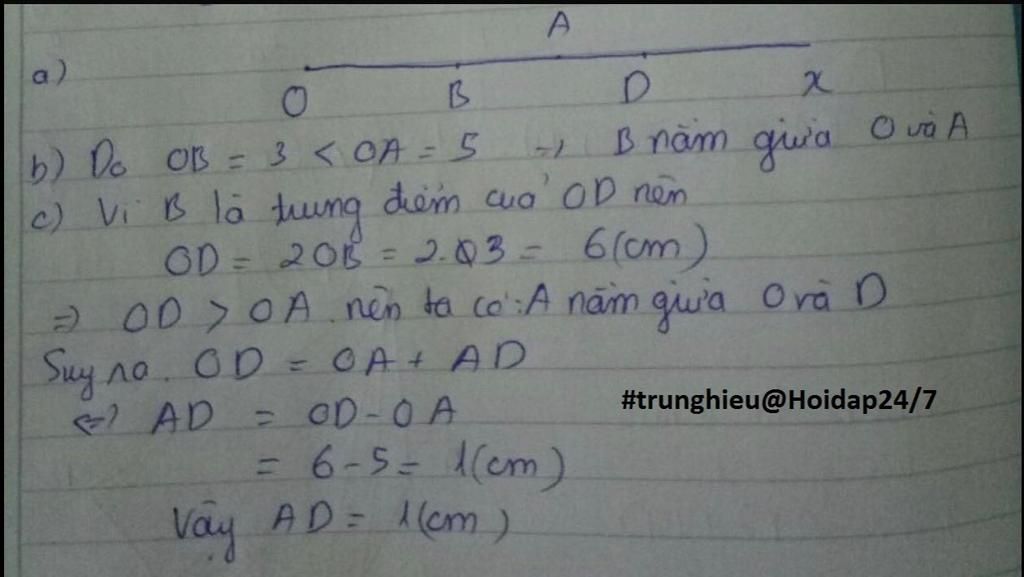 A
a)
O B D x
b) Do OB = 3 < OA = 5 => B nằm giữa O và A
c) Vì B là trung điểm của OD nên
OD = 2OB = 2.3 = 6(cm)
=> OD > OA nên ta có: A nằm giữa O và D
Suy ra. OD = OA + AD
<=> AD = OD - OA
#trunghieu@Hoidap24/7
= 6 - 5 = 1(cm)
Vậy AD = 1(cm)